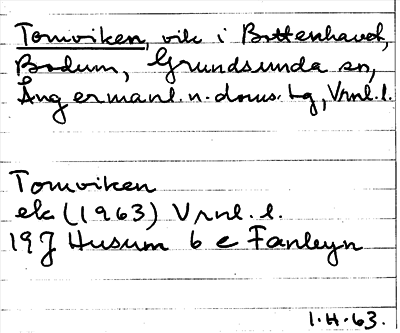 Tomviken, vik i Bottenhavet,
Bodum, Grundsunda sn,
Ångermanl. n. doms. tg, Vrnl. l.
Tomviken
ek (1963) Vrnl. l.
19J Husum 6 e Fanbyn
1.H.63.